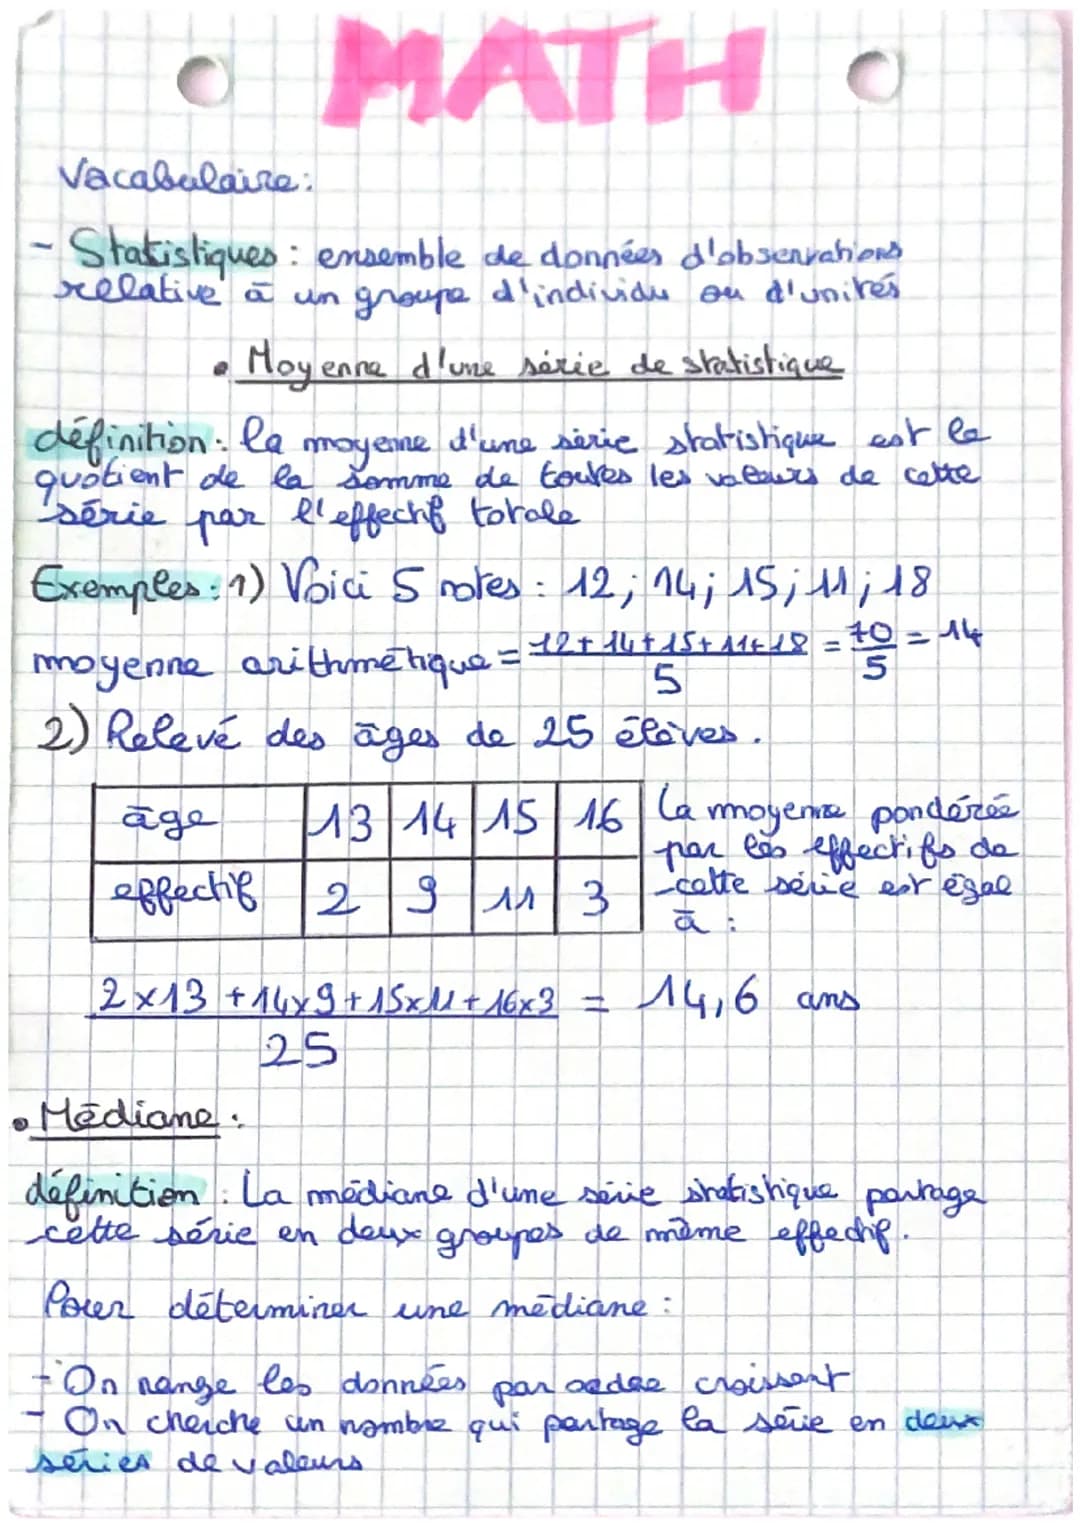 MATH
Vacabulaire:
- Statistiques : ensemble de données d'observations
relative à un groupe d'individu ou d'unités
• Moyenne d'une série de statistique
définition : la moyenne d'une série statistique est le
quotient de la somme de toutes les valeurs de cette
série par l'effectif totale
Exemples : 1) Voici 5 notes : 12 ; 14 ; 15 ; 11 ; 18
moyenne arithmétique = 12 + 14 + 15 + 11 + 18 / 5 = 70 / 5 = 14
2) Relevé des âges de 25 élèves.
âge 13 14 15 16
effectif 2 9 11 3
La moyenne pondérée
par les effectifs de
cette série est égal
à :
2 x 13 + 14 x 9 + 15 x 11 + 16 x 3 / 25 = 14,6 ans
• Médiane :
définition : La médiane d'une série statistique partage
cette série en deux groupes de même effectif.
Pour déterminer une médiane :
- On range les données par ordre croissant
- On cherche un nombre qui partage la série en deux
séries de valeurs